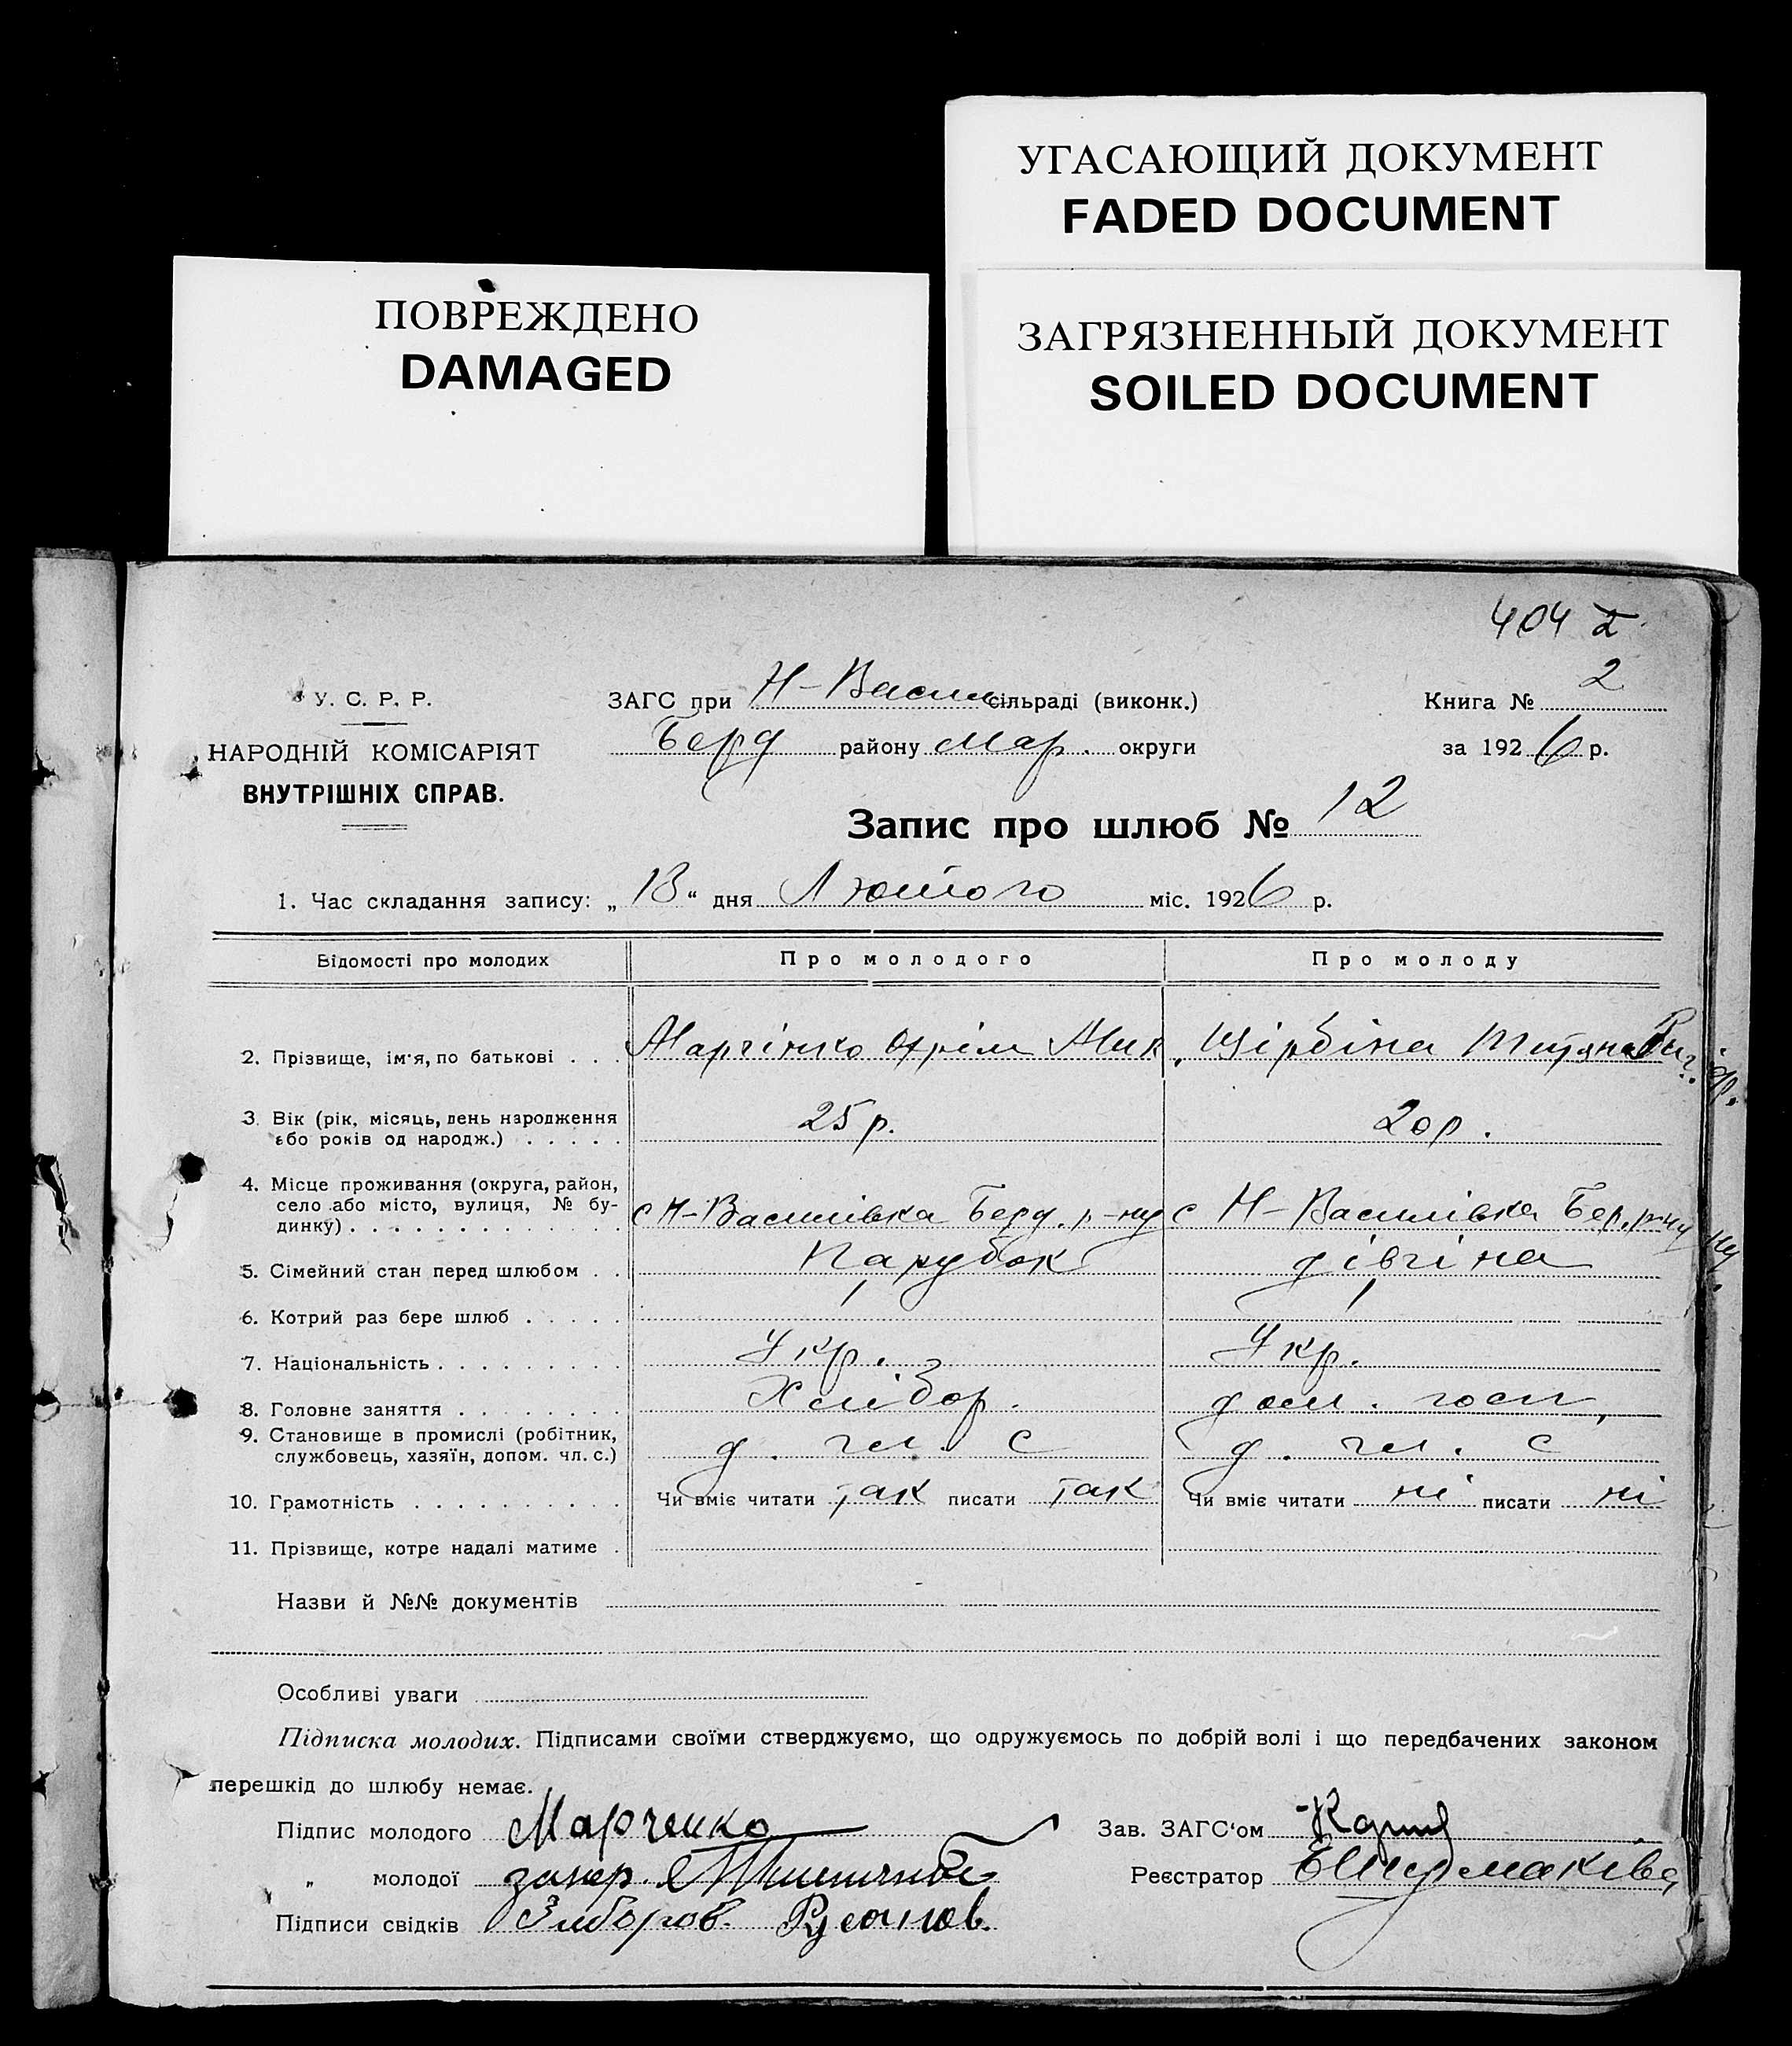 УГАСАЮЩИЙ ДОКУМЕНТ
FADED DOCUMENT
ПОВРЕЖДЕНО
DAMAGED
ЗАГРЯЗНЕННЫЙ ДОКУМЕНТ
SOILED DOCUMENT
404
У. С. Р. Р.
НАРОДНІЙ КОМІСАРІЯТ
ВНУТРІШНІХ СПРАВ.
ЗАГС при Н-Васил сільраді (виконк.)
Берд району Мар. округи
Книга № 2
за 1926 р.
Запис про шлюб № 12
1. Час складання запису: „13“ дня Лютого міс. 1926 р.
Відомості про молодих Про молодого Про молоду
2. Прізвище, ім'я, по батькові . . . Марчінко Охрім Мик. Щірбіна Титяна
3. Вік (рік, місяць, день народження
або років од народж.) . . . . . 25 р. 20 р.
4. Місце проживання (округа, район,
село або місто, вулиця, № бу-
динку) . . . . . . . . . . . . с Н-Василівка Берд. р-ну с Н-Василівка Бер. р-ну
5. Сімейний стан перед шлюбом . . Парубок дівчіна
6. Котрий раз бере шлюб . . . . . 1 1
7. Національність . . . . . . . . . Укр. Укр.
8. Головне заняття . . . . . . . . Хлібор. дом. госп.
9. Становище в промислі (робітник,
службовець, хазяїн, допом. чл. с.) д. чл. с д. чл. с
10. Грамотність . . . . . . . . . . Чи вміє читати так писати так Чи вміє читати ні писати ні
11. Прізвище, котре надалі матиме .
Назви й №№ документів
Особливі уваги
Підписка молодих. Підписами своїми стверджуємо, що одружуємось по добрій волі і що передбачених законом
перешкід до шлюбу немає.
Підпис молодого Марченко Зав. ЗАГС'ом
„ молодої Реєстратор
Підписи свідків Зиборов. Русанов.